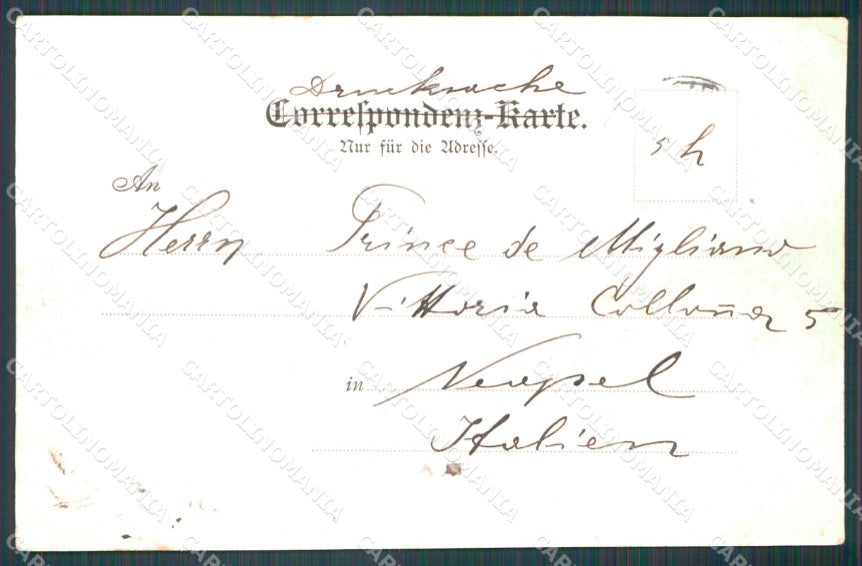 Drucksache
Correspondenz-Karte.
Nur für die Adresse.
5 h
An
Herrn Prince de Migliano
Vittoria Collona 5
in Neapel
Italien
CARTOLINOMANIA